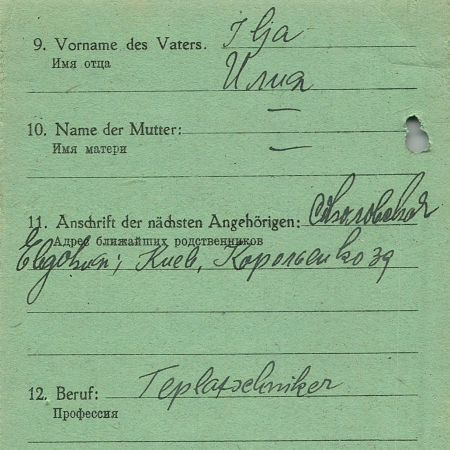 9. Vorname des Vaters. Ilja
Имя отца Илиа
10. Name der Mutter: —
Имя матери —
11. Anschrift der nächsten Angehörigen:
Адрес ближайших родственников
Киев, Короленко
12. Beruf: Teplotechniker
Профессия